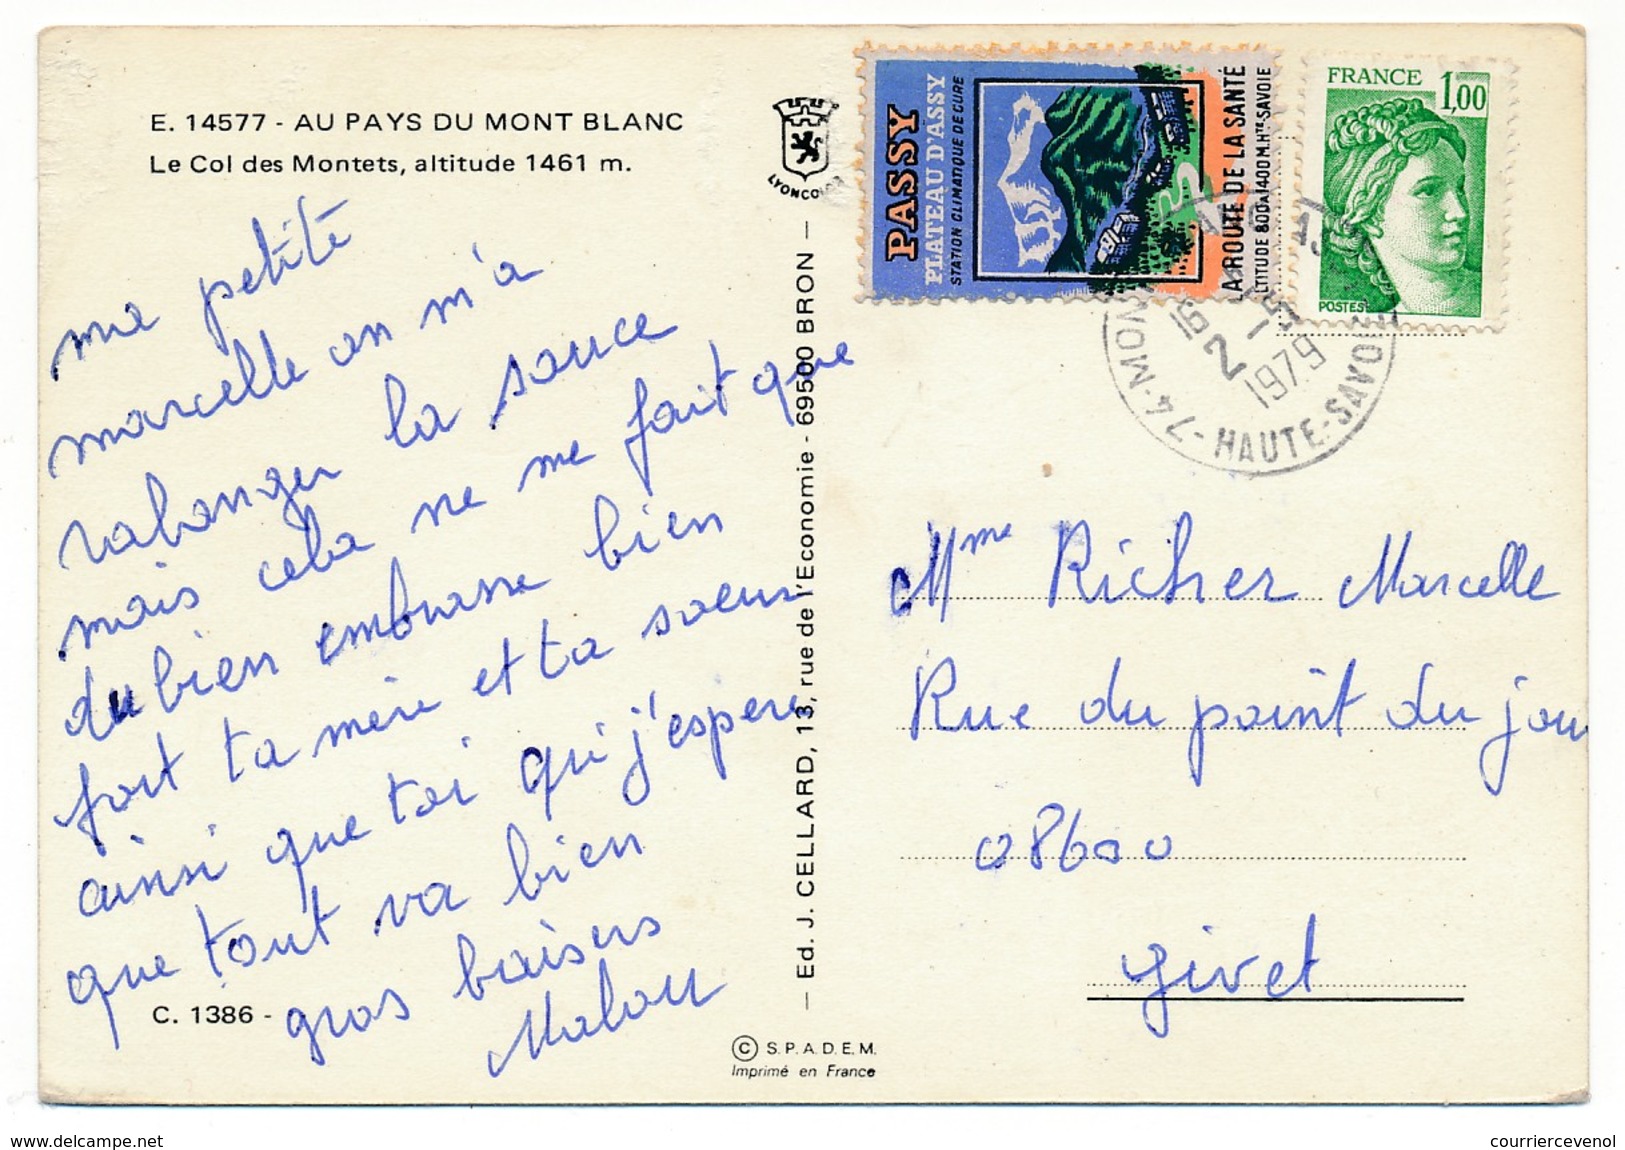 E. 14577 - AU PAYS DU MONT BLANC
Le Col des Montets, altitude 1461 m.
LYONCOLOR
ma petite
marcelle on m'a
la sauce
mais cela ne me fait que
du bien embrasse bien
fort ta mère et ta soeur
ainsi que toi qui j'espere
que tout va bien
gros baisers
Malou
C. 1386 -
— Ed. J. CELLARD, 13, rue de l'Economie - 69500 BRON —
© S.P.A.D.E.M.
Imprimé en France
PASSY
PLATEAU D'ASSY
STATION CLIMATIQUE DE CURE
LA ROUTE DE LA SANTÉ
ALTITUDE 800 A 1400 M. HTE-SAVOIE
FRANCE 1,00
POSTES
2 - 5
1979
74 - HAUTE-SAVOIE
Mme Richer Marcelle
Rue du point du jour
08600
Givet
courriercevenol